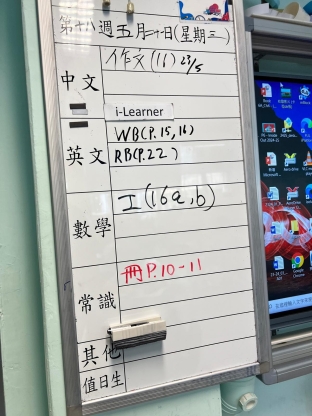 第十八週五月 日(星期三)
中文 作文(11) 23/5
i-Learner
英文 WB(P.15,16)
RB(P.22)
數學 工(16a,b)
常識 冊P.10-11
其他
值日生